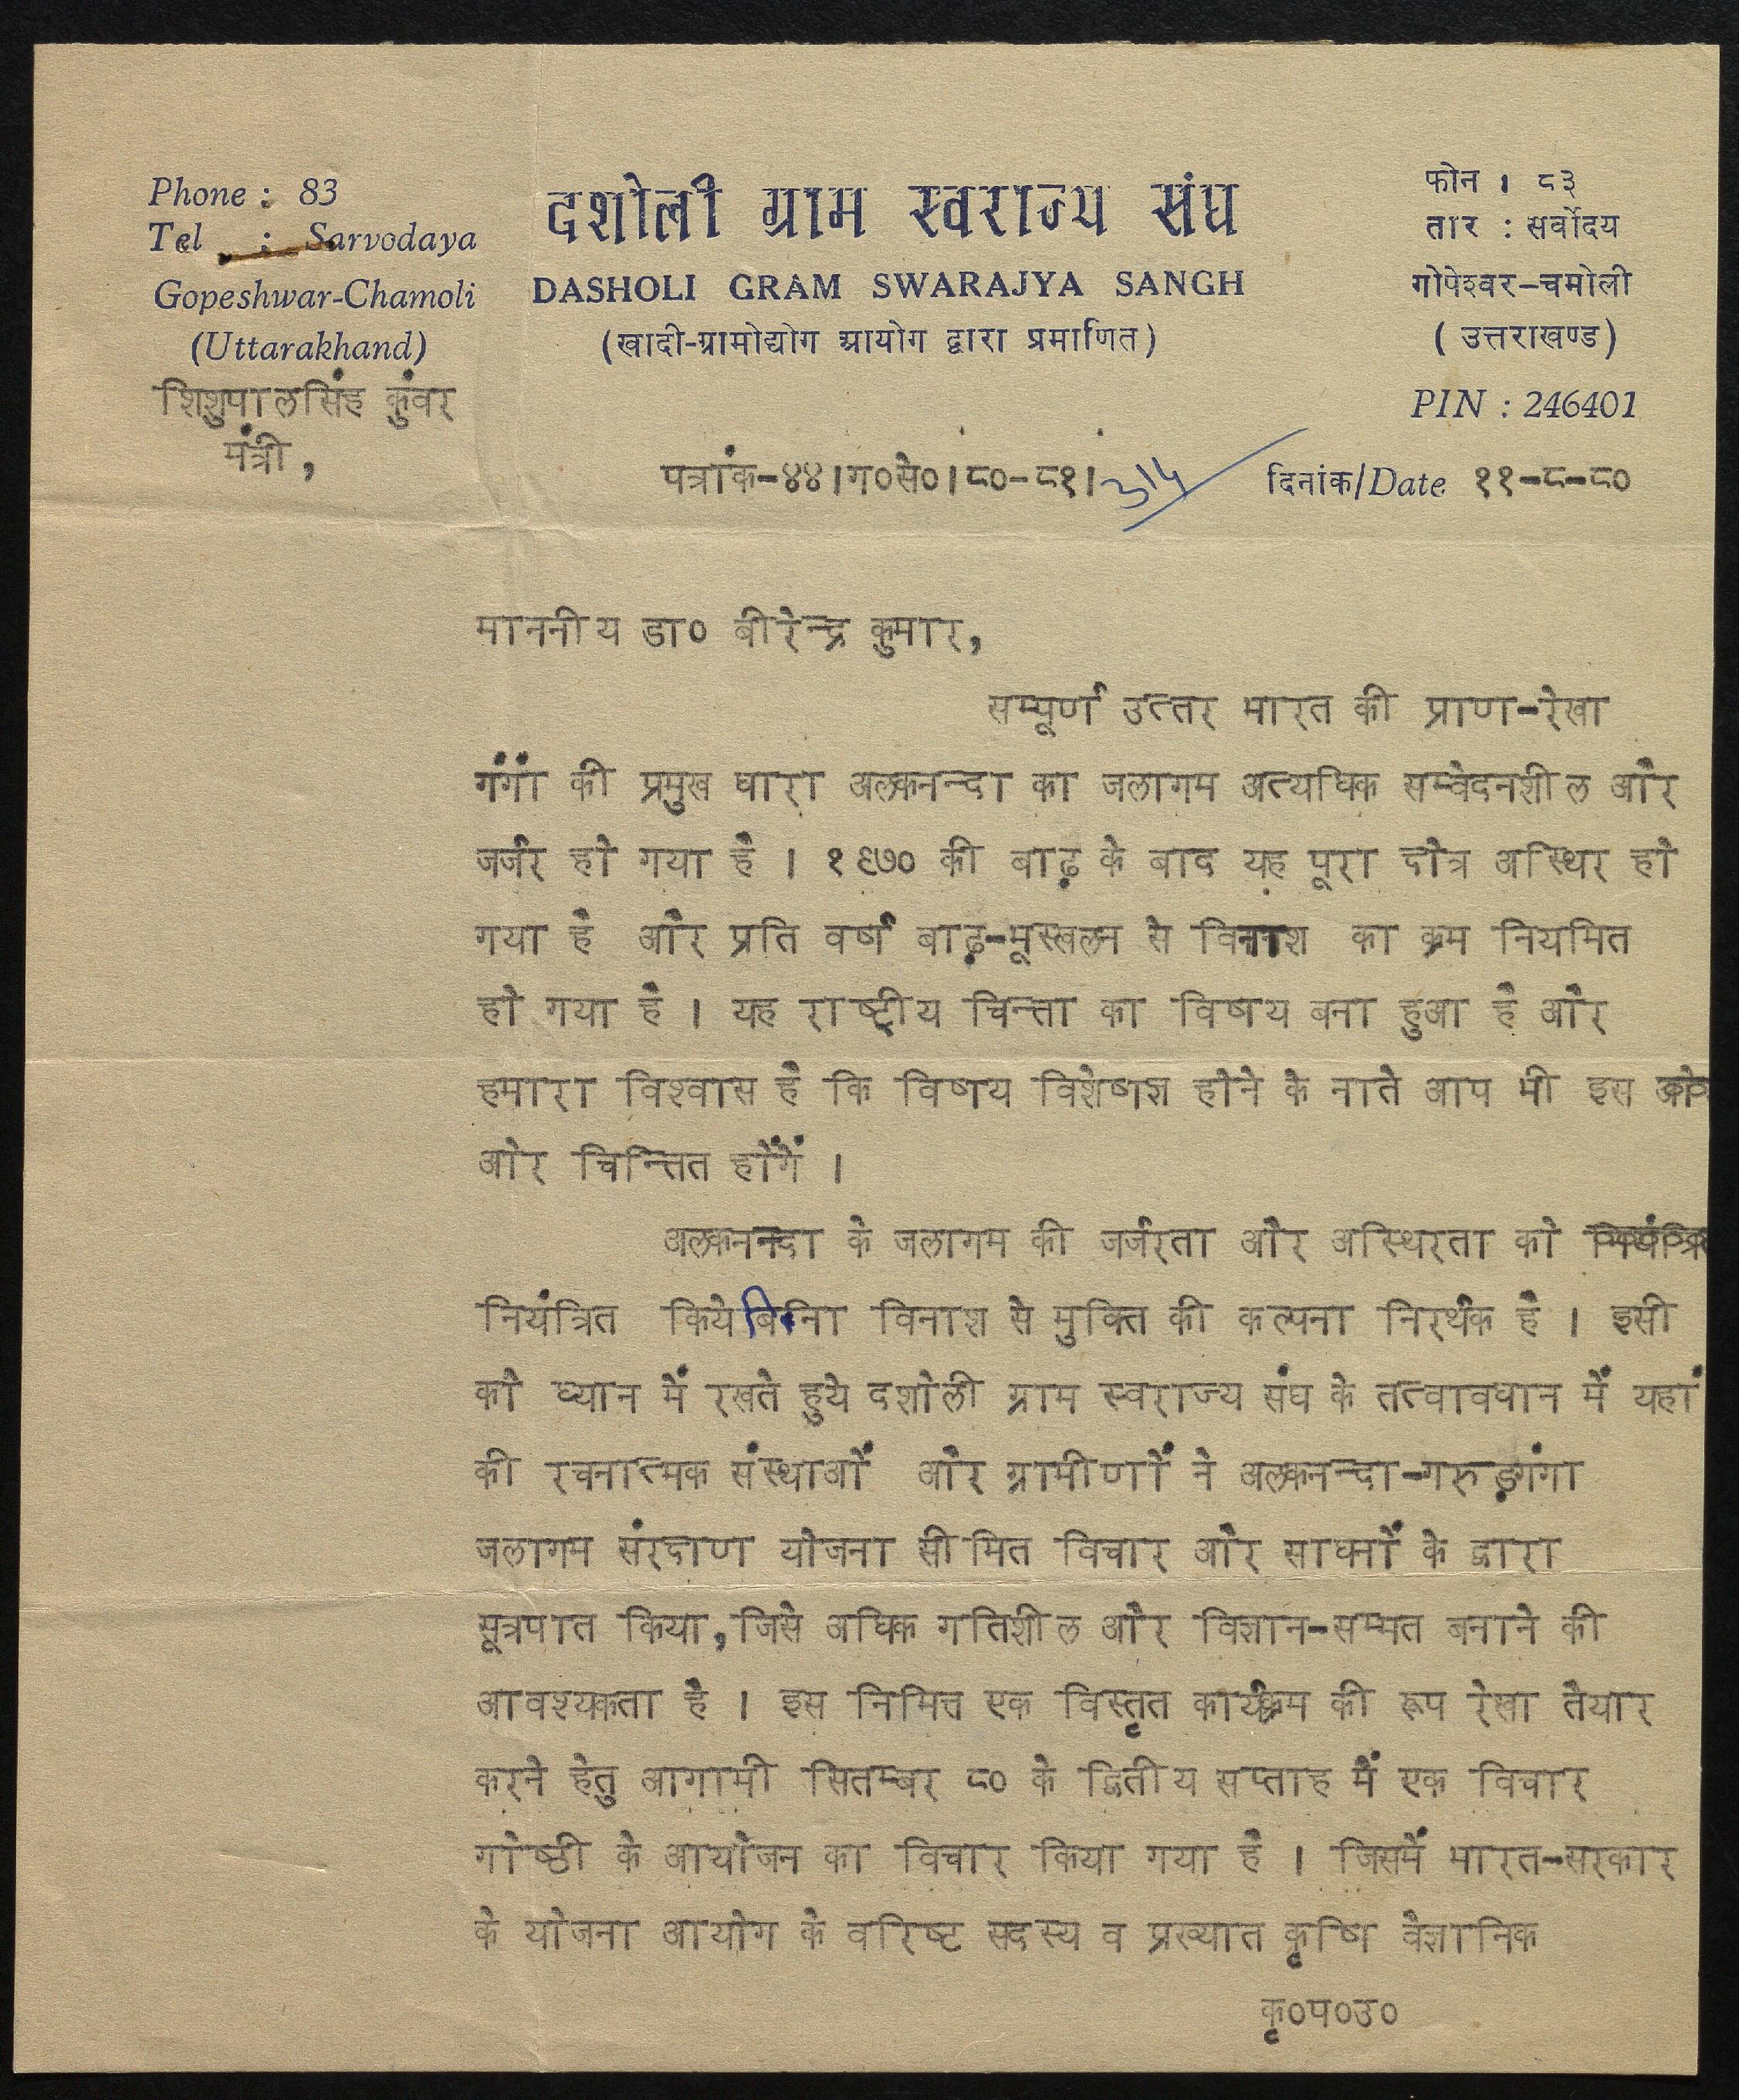 Phone : 83
Tel : Sarvodaya
Gopeshwar-Chamoli
(Uttarakhand)
शिशुपालसिंह कुंवर
मंत्री,
दशोली ग्राम स्वराज्य संघ
DASHOLI GRAM SWARAJYA SANGH
(खादी-ग्रामोद्योग आयोग द्वारा प्रमाणित)
फोन । ८३
तार : सर्वोदय
गोपेश्वर-चमोली
( उत्तराखण्ड )
PIN : 246401
पत्रांक-४४।ग०से०।८०-८१। 314
दिनांक/Date ११-८-८०
माननीय डा० बीरेन्द्र कुमार,
सम्पूर्ण उत्तर भारत की प्राण-रेखा
गंगां की प्रमुख धारा अलकनन्दा का जलागम अत्यधिक सम्वेदनशील और
जर्जर हो गया है । १९७० की बाढ़ के बाद यह पूरा क्षेत्र अस्थिर हो
गया है और प्रति वर्ष बाढ़-भूस्खलन से विनाश का क्रम नियमित
हो गया है । यह राष्ट्रीय चिन्ता का विषय बना हुआ है और
हमारा विश्वास है कि विषय विशेषज्ञ होने के नाते आप भी इस
ओर चिन्तित होंगें ।
अलकनन्दा के जलागम की जर्जरता और अस्थिरता को नियंत्रित
नियंत्रित किये बिना विनाश से मुक्ति की कल्पना निरर्थक है । इसी
को ध्यान में रखते हुये दशोली ग्राम स्वराज्य संघ के तत्वावधान में यहां
की रचनात्मक संस्थाओं और ग्रामीणों ने अलकनन्दा-गरुड़गंगा
जलागम संरक्षण योजना सीमित विचार और साधनों के द्वारा
सूत्रपात किया, जिसे अधिक गतिशील और विज्ञान-सम्मत बनाने की
आवश्यकता है । इस निमित्त एक विस्तृत कार्यक्रम की रूप रेखा तैयार
करने हेतु आगामी सितम्बर ८० के द्वितीय सप्ताह में एक विचार
गोष्ठी के आयोजन का विचार किया गया है । जिसमें भारत-सरकार
के योजना आयोग के वरिष्ट सदस्य व प्रख्यात कृषि वैज्ञानिक
कृ०प०उ०